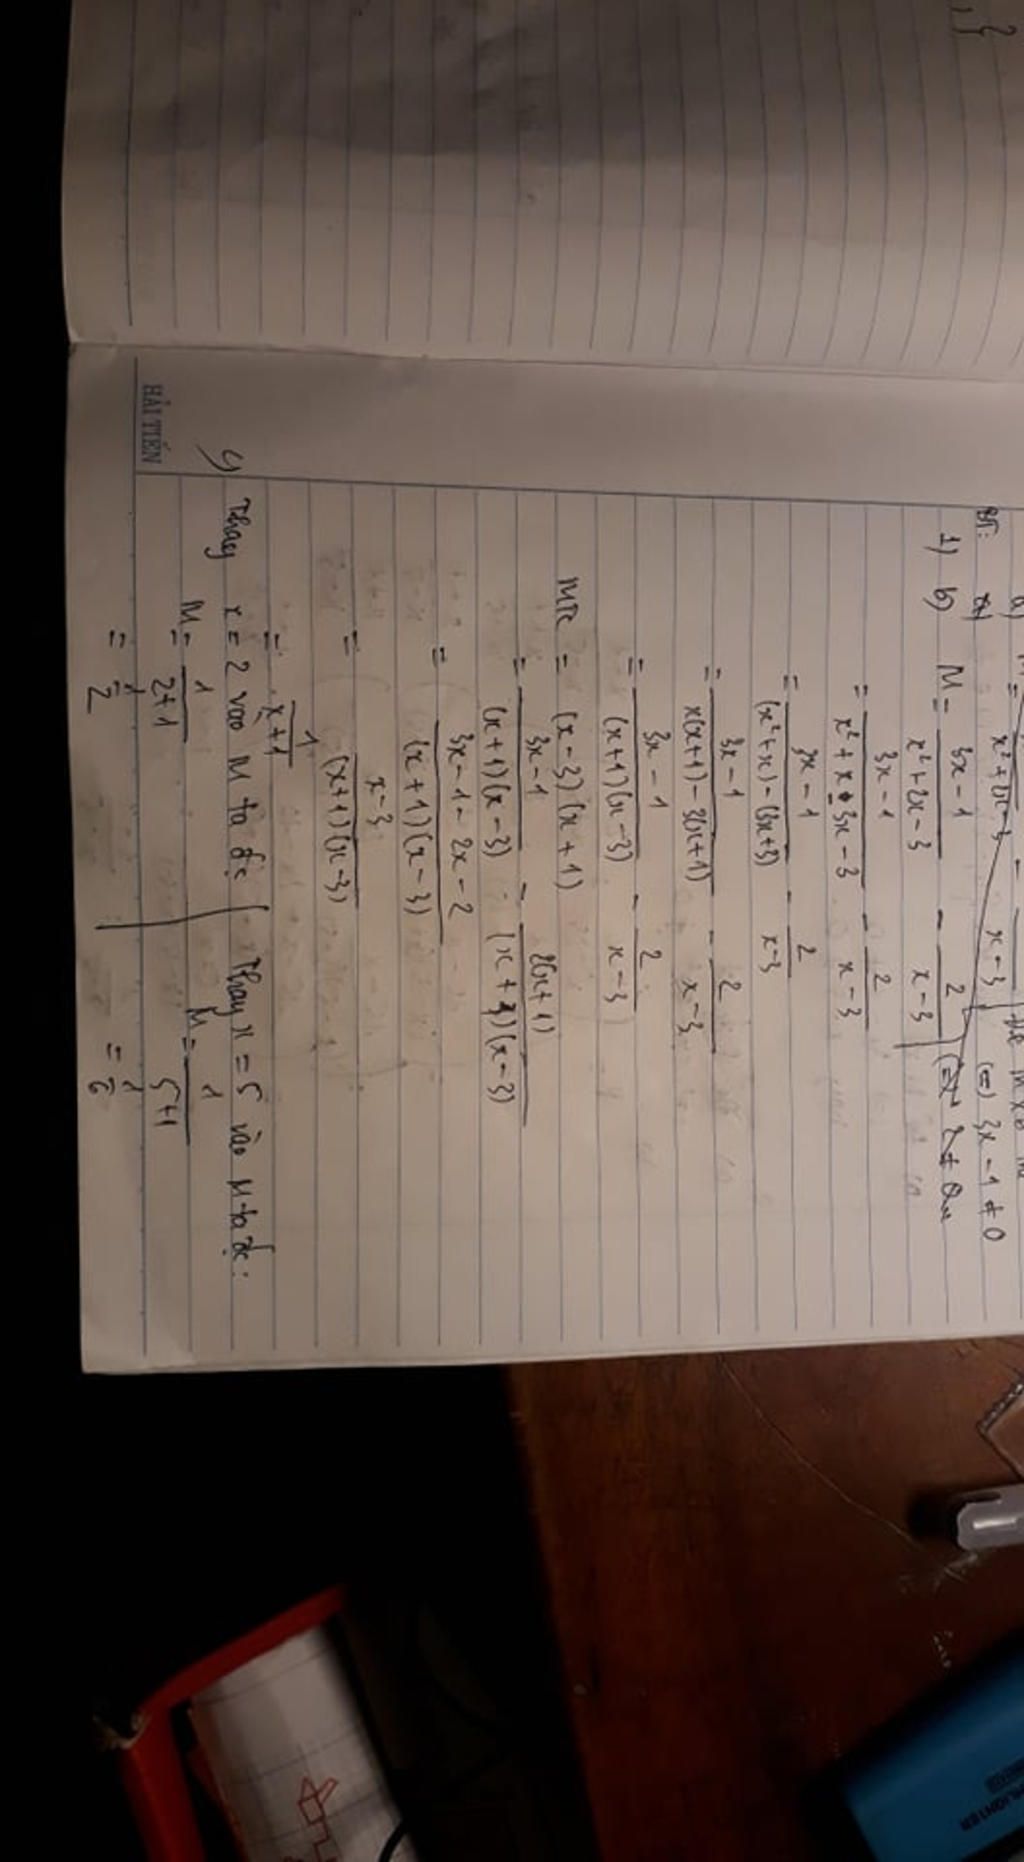 BT:
(=) 3x - 1 ≠ 0
1) b) M = 3x - 1 / x² + 2x - 3 - 2 / x - 3
= 3x - 1 / x² + x - 3x - 3 - 2 / x - 3
= 3x - 1 / (x² + x) - (3x + 3) - 2 / x - 3
= 3x - 1 / x(x + 1) - 3(x + 1) - 2 / x - 3
= 3x - 1 / (x + 1)(x - 3) - 2 / x - 3
MTC = (x - 3)(x + 1)
= 3x - 1 / (x + 1)(x - 3) - 2(x + 1) / (x + 1)(x - 3)
= 3x - 1 - 2x - 2 / (x + 1)(x - 3)
= x - 3 / (x + 1)(x - 3)
= 1 / x + 1
Thay x = 2 vào M ta đc Thay x = 5 vào M ta đc:
M = 1 / 2 + 1 M = 1 / 5 + 1
= 1 / 2 = 1 / 6
HẢI TIẾN